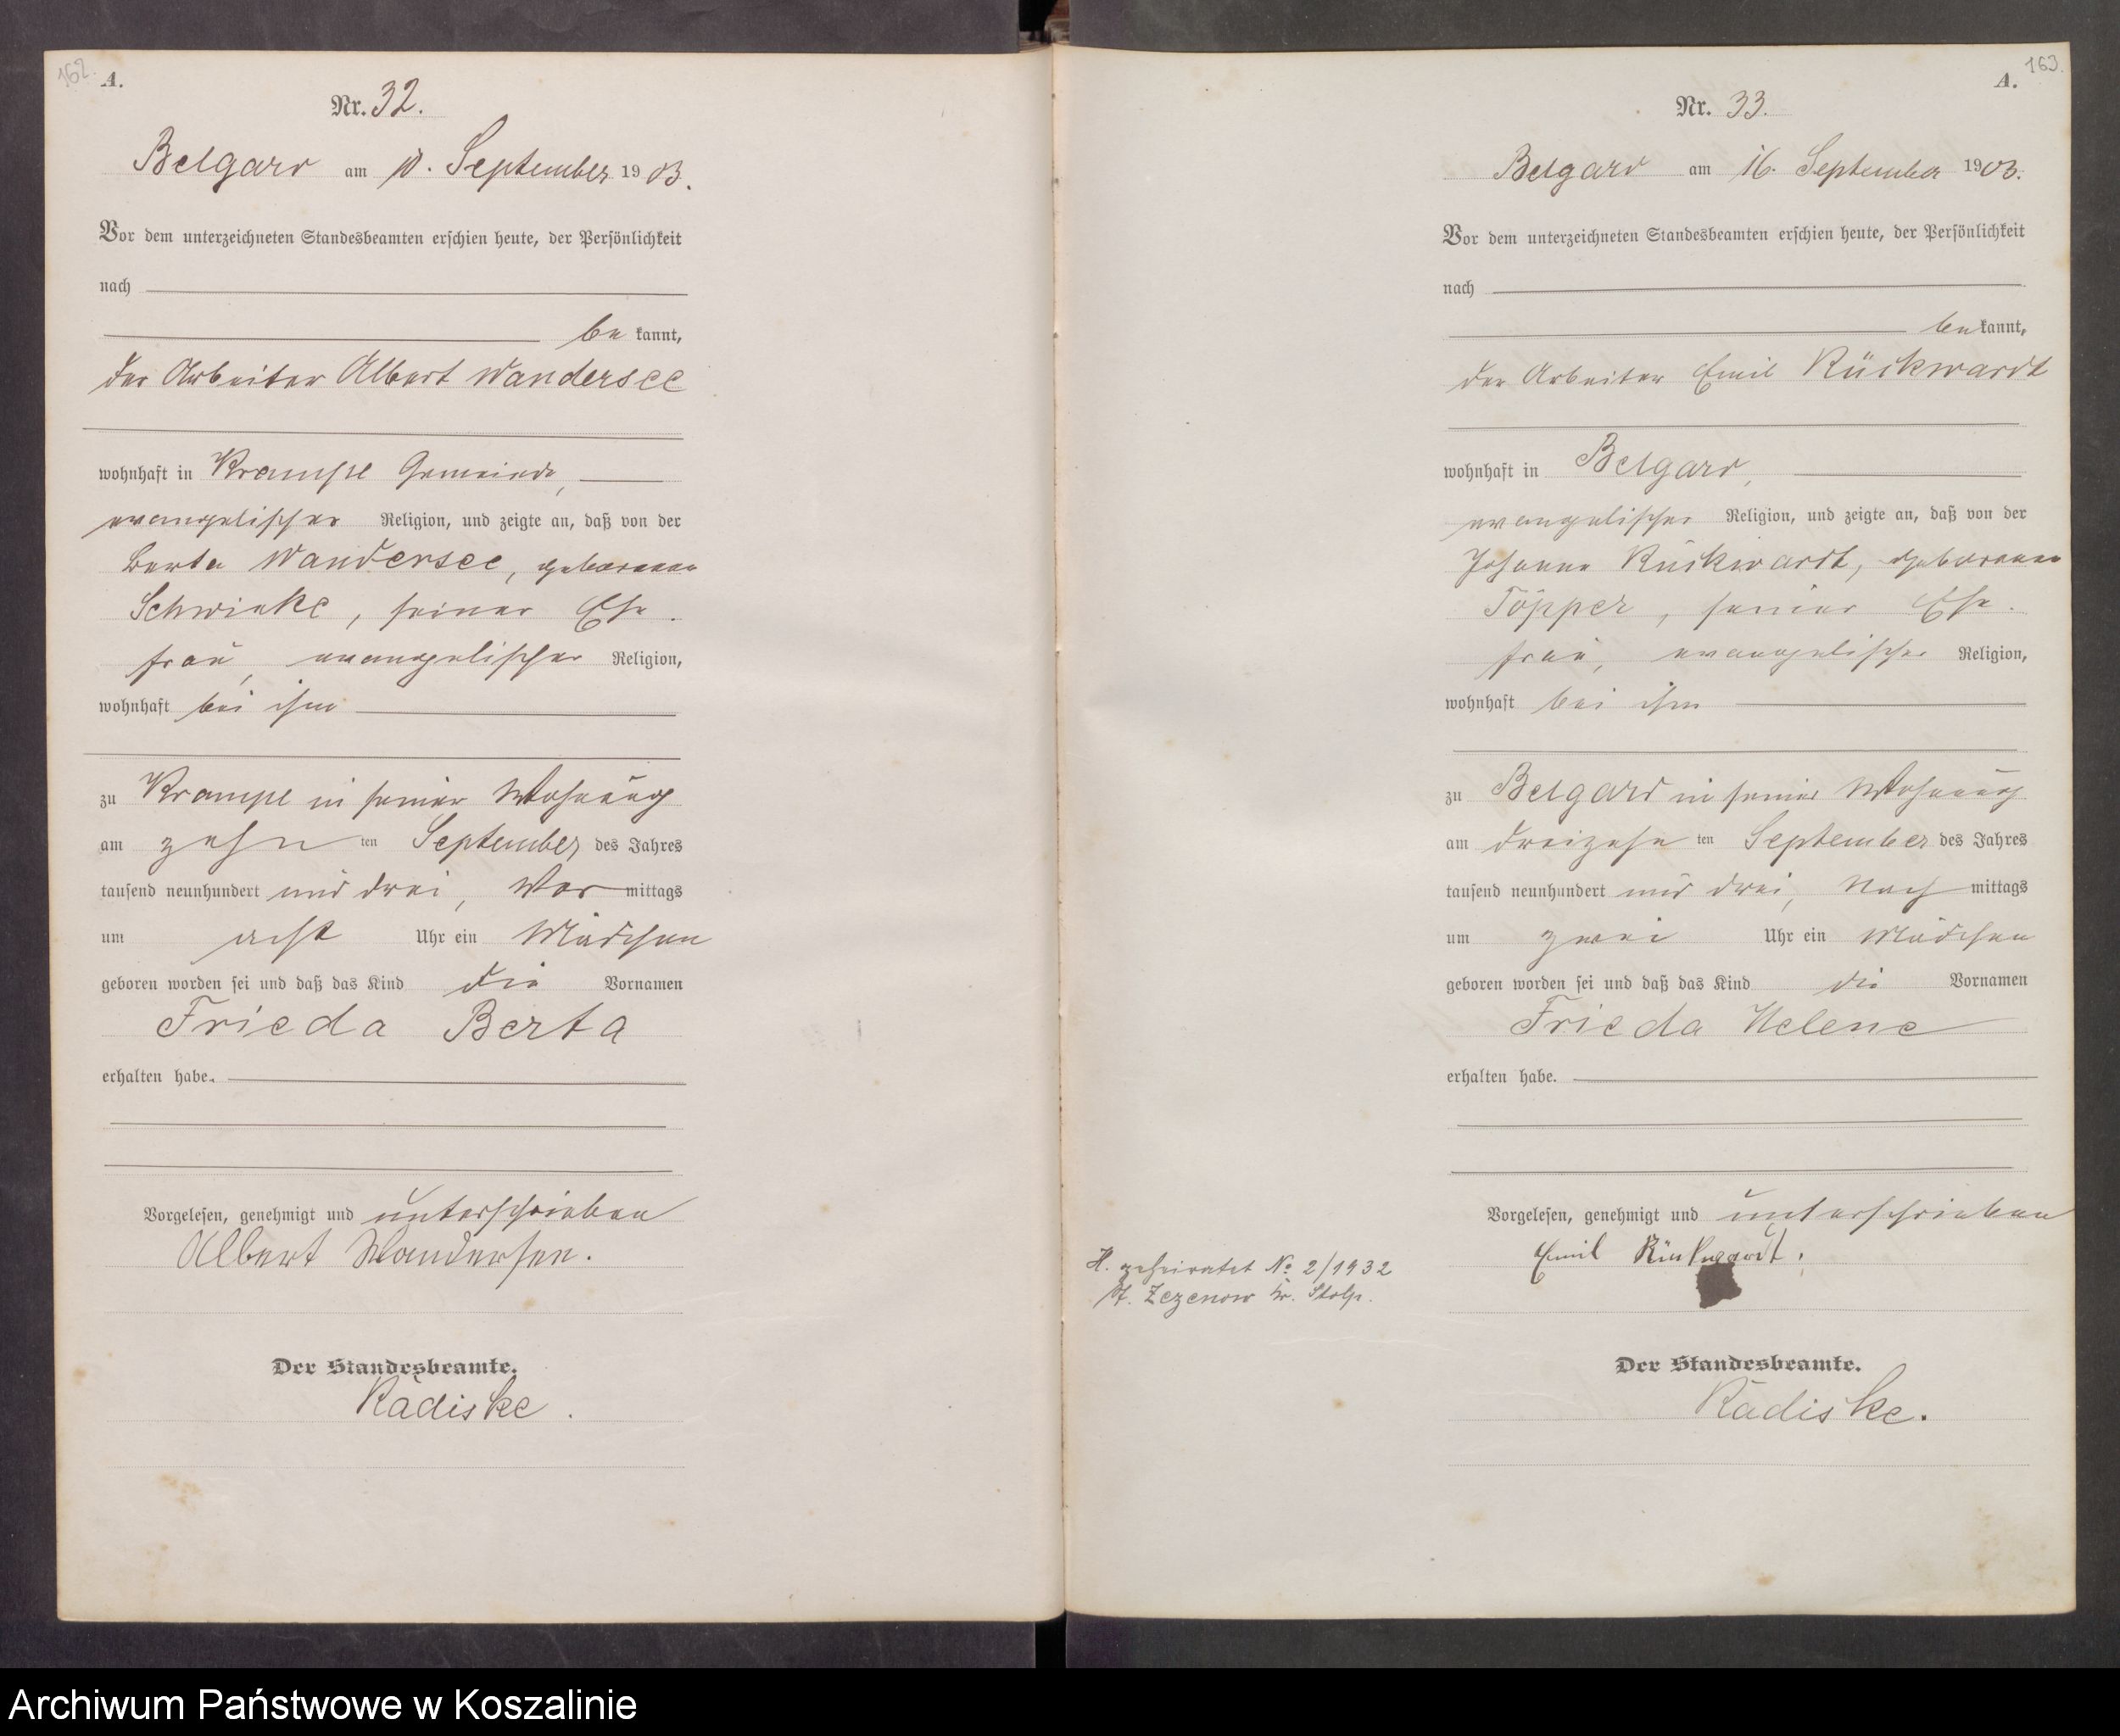 162.
A.
Nr. 32.
Belgard am 10. September 1903.
Vor dem unterzeichneten Standesbeamten erschien heute, der Persönlichkeit
nach
be kannt,
der Arbeiter Albert Wandersee
wohnhaft in Krampe Gemeinde,
evangelischer Religion, und zeigte an, daß von der
Berta Wandersee, geborenen
Schwinke, seiner Ehe-
frau, evangelischer Religion,
wohnhaft bei ihm
zu Krampe in seiner Wohnung
am zehn ten September des Jahres
tausend neunhundert und drei, Vor mittags
um acht Uhr ein Mädchen
geboren worden sei und daß das Kind die Vornamen
Frieda Berta
erhalten habe.
Vorgelesen, genehmigt und unterschrieben
Albert Wandersee.
Der Standesbeamte.
Radiske.
163.
A.
Nr. 33.
Belgard am 16. September 1903.
Vor dem unterzeichneten Standesbeamten erschien heute, der Persönlichkeit
nach
be kannt,
der Arbeiter Emil Rückwardt
wohnhaft in Belgard,
evangelischer Religion, und zeigte an, daß von der
Johanna Rückwardt, geborenen
Töpper, seiner Ehe-
frau, evangelischer Religion,
wohnhaft bei ihm
zu Belgard in seiner Wohnung
am dreizehn ten September des Jahres
tausend neunhundert und drei, Nach mittags
um zwei Uhr ein Mädchen
geboren worden sei und daß das Kind die Vornamen
Frieda Helene
erhalten habe.
Vorgelesen, genehmigt und unterschrieben
Emil Rückwardt.
H. geheiratet No 2/1932
Zezenow Kr. Stolp.
Der Standesbeamte.
Radiske.
Archiwum Państwowe w Koszalinie